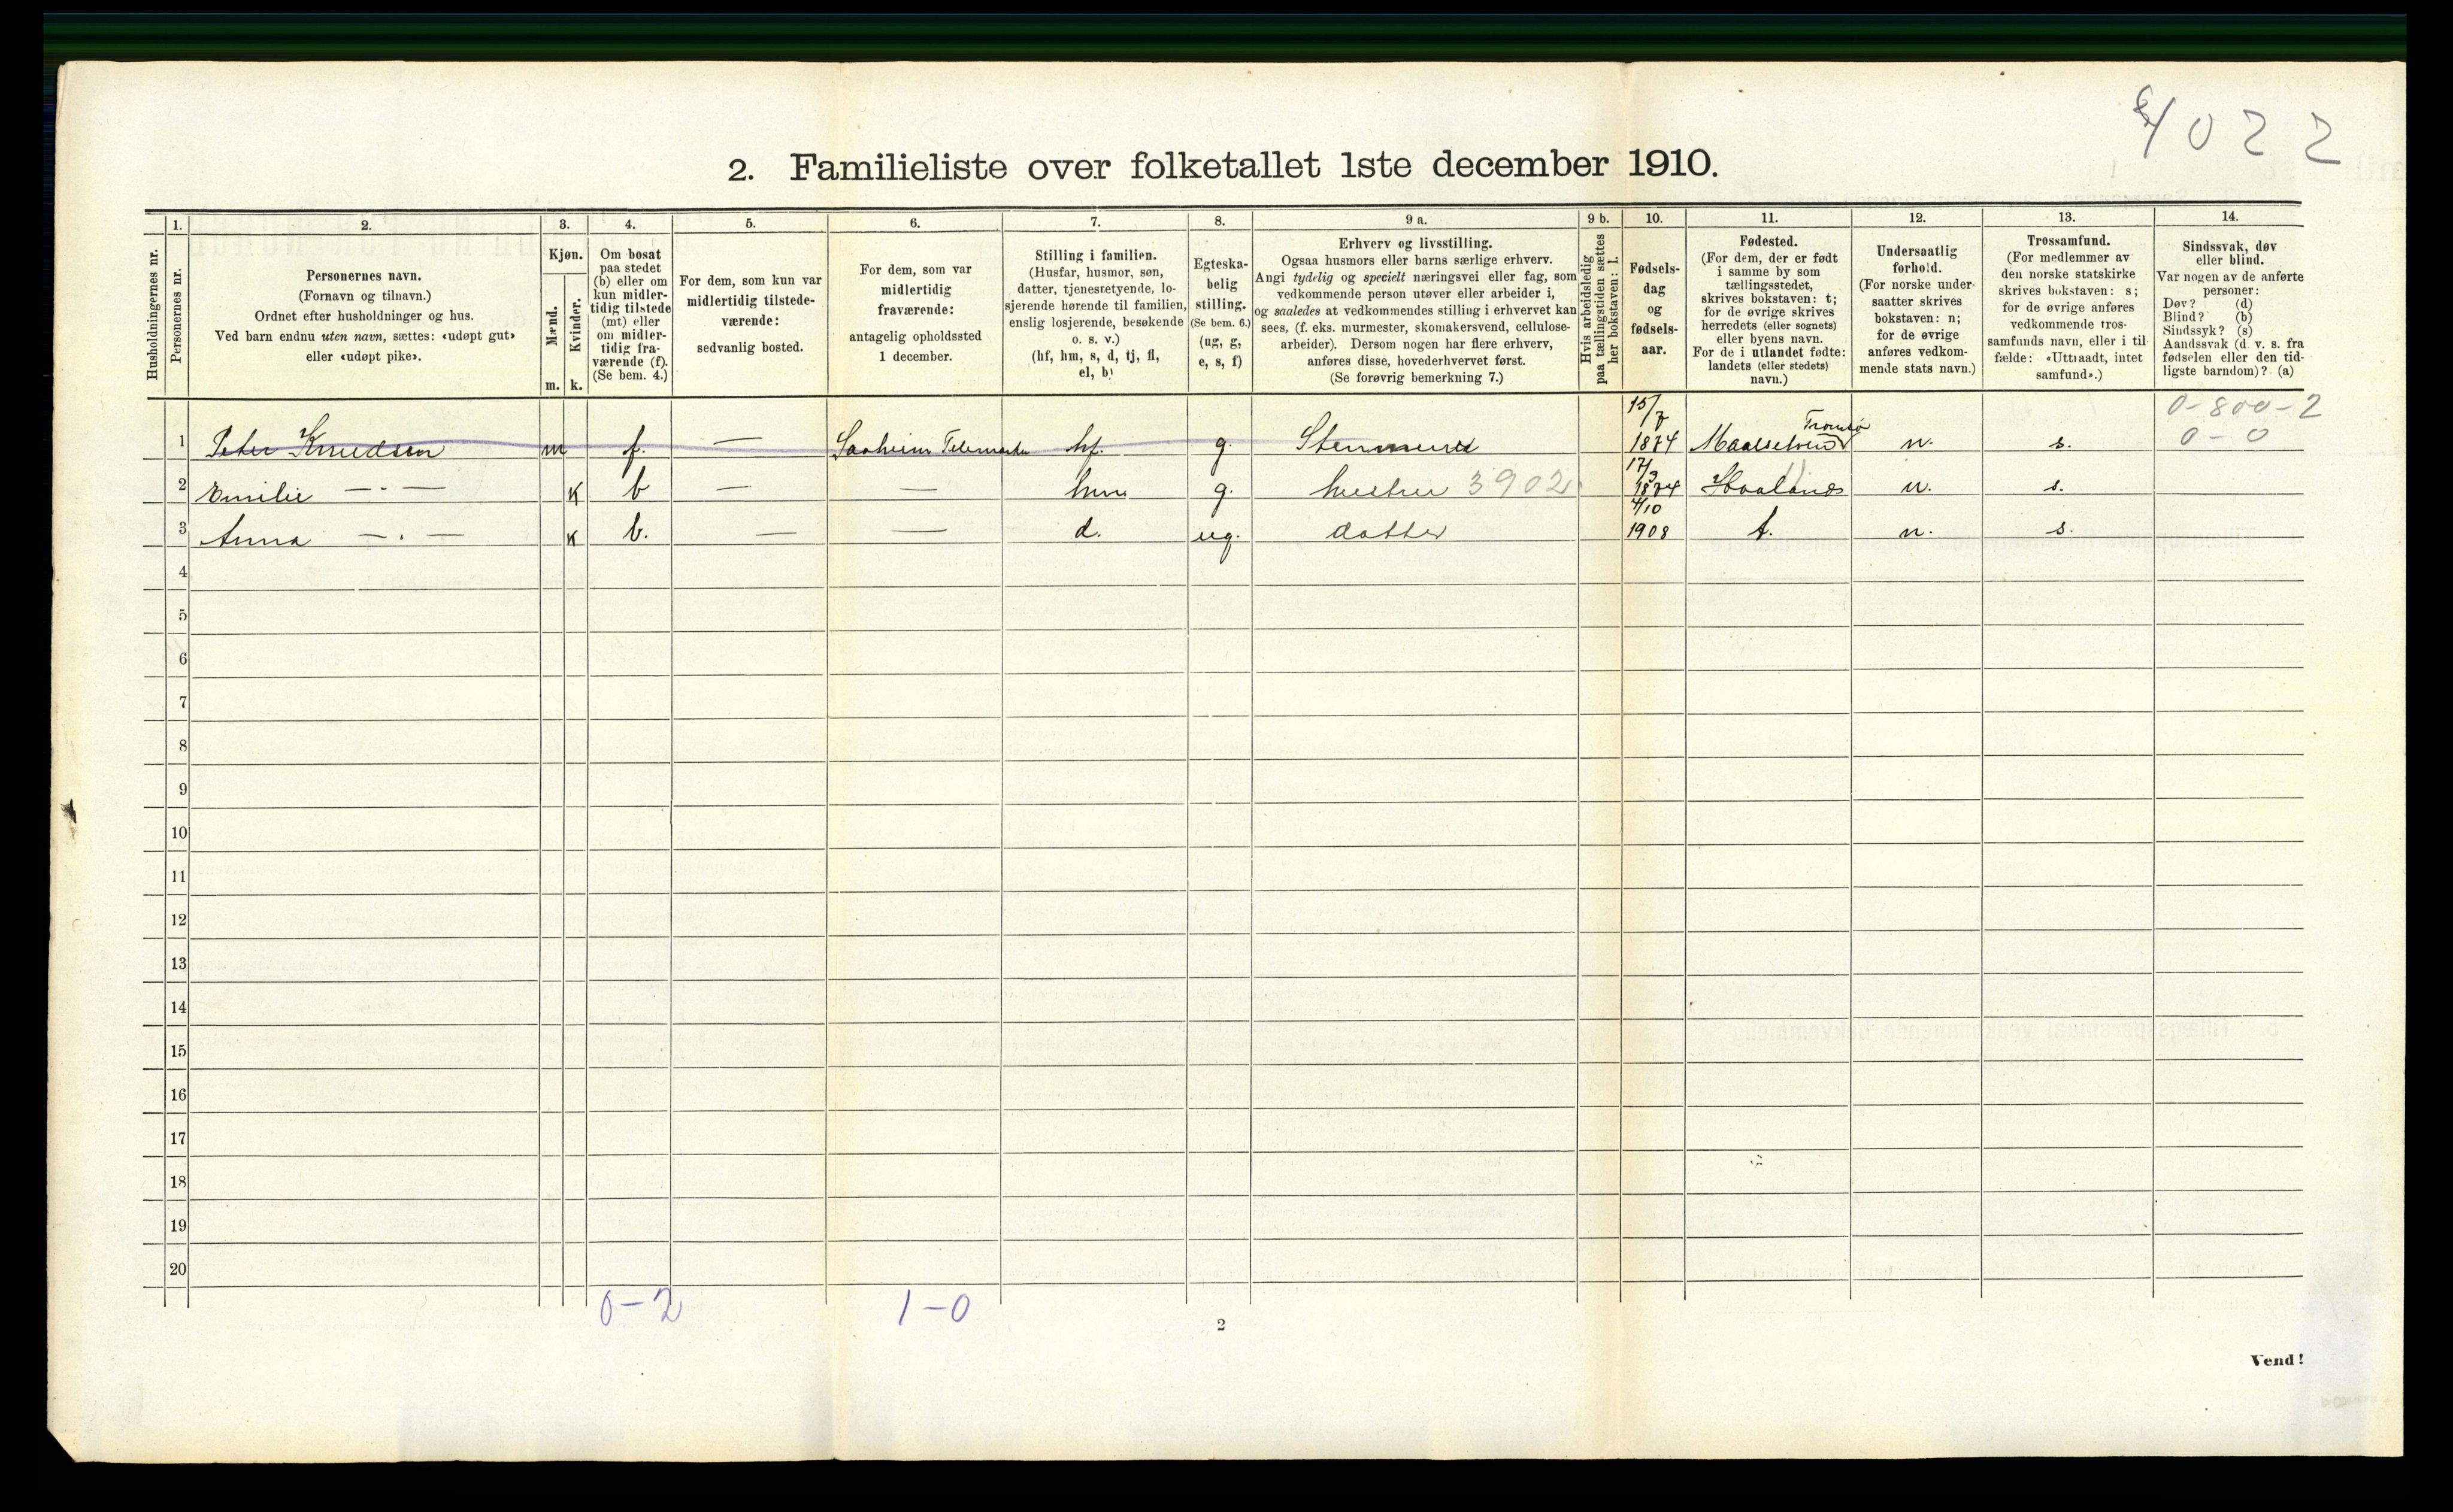 4022
2. Familieliste over folketallet 1ste december 1910.
Husholdningernes nr.
1. Personernes nr.
2. Personernes navn. (Fornavn og tilnavn.) Ordnet efter husholdninger og hus. Ved barn endnu uten navn, sættes: «udøpt gut» eller «udøpt pike».
3. Kjøn. Mænd. m. Kvinder. k.
4. Om bosat paa stedet (b) eller om kun midlertidig tilstede (mt) eller om midlertidig fraværende (f). (Se bem. 4.)
5. For dem, som kun var midlertidig tilstedeværende: sedvanlig bosted.
6. For dem, som var midlertidig fraværende: antagelig opholdssted 1 december.
7. Stilling i familien. (Husfar, husmor, søn, datter, tjenestetyende, losjerende hørende til familien, enslig losjerende, besøkende o. s. v.) (hf, hm, s, d, tj, fl, el, b)
8. Egteskabelig stilling. (Se bem. 6.) (ug, g, e, s, f)
9 a. Erhverv og livsstilling. Ogsaa husmors eller barns særlige erhverv. Angi tydelig og specielt næringsvei eller fag, som vedkommende person utøver eller arbeider i, og saaledes at vedkommendes stilling i erhvervet kan sees, (f. eks. murmester, skomakersvend, cellulosearbeider). Dersom nogen har flere erhverv, anføres disse, hovederhvervet først. (Se forøvrig bemerkning 7.)
9 b. Hvis arbeidsledig paa tællingstiden sættes her bokstaven: l.
10. Fødselsdag og fødselsaar.
11. Fødested. (For dem, der er født i samme by som tællingsstedet, skrives bokstaven: t; for de øvrige skrives herredets (eller sognets) eller byens navn. For de i utlandet fødte: landets (eller stedets) navn.)
12. Undersaatlig forhold. (For norske undersaatter skrives bokstaven: n; for de øvrige anføres vedkommende stats navn.)
13. Trossamfund. (For medlemmer av den norske statskirke skrives bokstaven: s; for de øvrige anføres vedkommende trossamfunds navn, eller i tilfælde: «Uttraadt, intet samfund».)
14. Sindssvak, døv eller blind. Var nogen av de anførte personer: Døv? (d) Blind? (b) Sindssyk? (s) Aandssvak (d. v. s. fra fødselen eller den tidligste barndom)? (a)
0-800-2
0-0
1 Peter Knudsen m f. — Saaheim Telemarken hf. g. 15/7 1874 Maalselven Tromsø n. s.
2 Emilie —"— k b — — hm g. hustru 3902 17/3 1874 Haaland n. s.
3 Anna —"— k b. — — d. ug. datter 4/10 1908 t. n. s.
4
5
6
7
8
9
10
11
12
13
14
15
16
17
18
19
20
0-2 1-0
2
Vend!